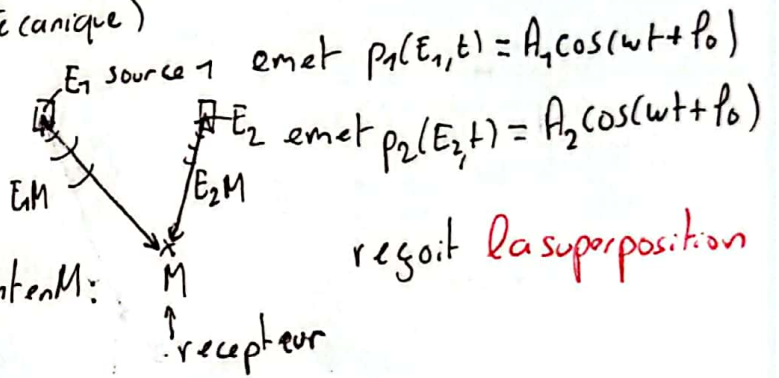 écanique)
E₁ source 1 emet p₁(E₁,t) = A₁cos(ωt+φ₀)
E₂ emet p₂(E₂,t) = A₂cos(ωt+φ₀)
E₁M
E₂M
reçoit la superposition
ntenM:
M
recepteur